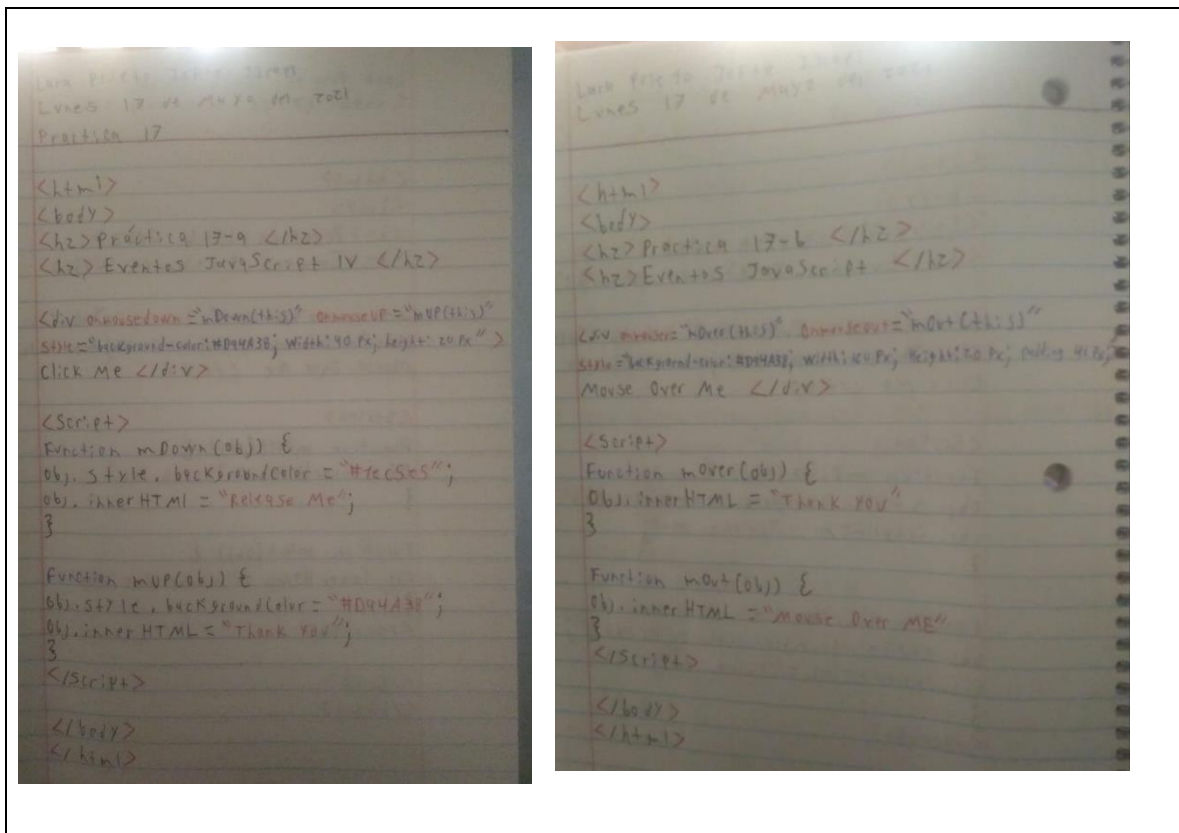 Lunes 17 de Mayo del 2021
Practica 17
<html>
<body>
<h2>Práctica 17-a </h2>
<h2>Eventos JavaScript IV </h2>
<div onmousedown="mDown(this)" onmouseup="mUP(this)"
style="background-color:#D94A38; Width:90 Px; height: 20 Px">
Click Me </div>
<Script>
Function mDown(obj) {
obj.style.backgroundColor = "#1ec5e5";
obj.innerHTMl = "Release Me";
}
Function mUP(obj) {
obj.style.backgroundColor = "#D94A38";
obj.innerHTML = "Thank You";
}
</Script>
</body>
</html>
Lunes 17 de Mayo del 2021
<html>
<body>
<h2>Practica 17-b </h2>
<h2>Eventos JavaScript </h2>
<div "mOver(this)" onmouseout="mOut(this)"
style="background-color:#D94A38; Width:120 Px; height:20 Px; Padding 40 Px;
Mouse Over Me </div>
<Script>
Function mOver(obj) {
Obj.innerHTML = "Thank YOU"
}
Function mOut(obj) {
Obj.innerHTML = "Mouse Over ME"
}
</Script>
</body>
</html>